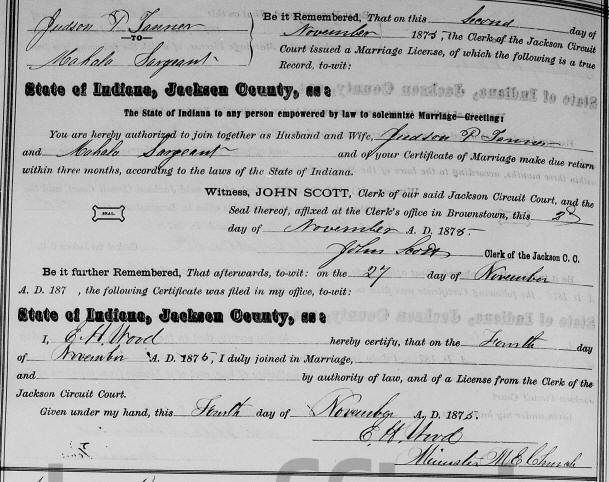 Judson P Tanner
—TO—
Mahala Sargeant
Be it Remembered, That on this Second day of
November 1875, the Clerk of the Jackson Circuit
Court issued a Marriage License, of which the following is a true
Record, to-wit:
State of Indiana, Jackson County, ss:
The State of Indiana to any person empowered by law to solemnize Marriage—Greeting:
You are hereby authorized to join together as Husband and Wife, Judson P Tanner
and Mahala Sargeant and of your Certificate of Marriage make due return
within three months, according to the laws of the State of Indiana.
Witness, JOHN SCOTT, Clerk of our said Jackson Circuit Court, and the
Seal thereof, affixed at the Clerk's office in Brownstown, this 2d
SEAL.
day of November A. D. 1875.
John Scott Clerk of the Jackson C. C.
Be it further Remembered, That afterwards, to-wit: on the 27 day of November
A. D. 187 , the following Certificate was filed in my office, to-wit:
State of Indiana, Jackson County, ss:
I, E. H. Wood hereby certify, that on the Fourth day
of November A. D. 1875, I duly joined in Marriage,
and by authority of law, and of a License from the Clerk of the
Jackson Circuit Court.
Given under my hand, this Fourth day of November A. D. 1875.
E H Wood
Minister M. E. Church